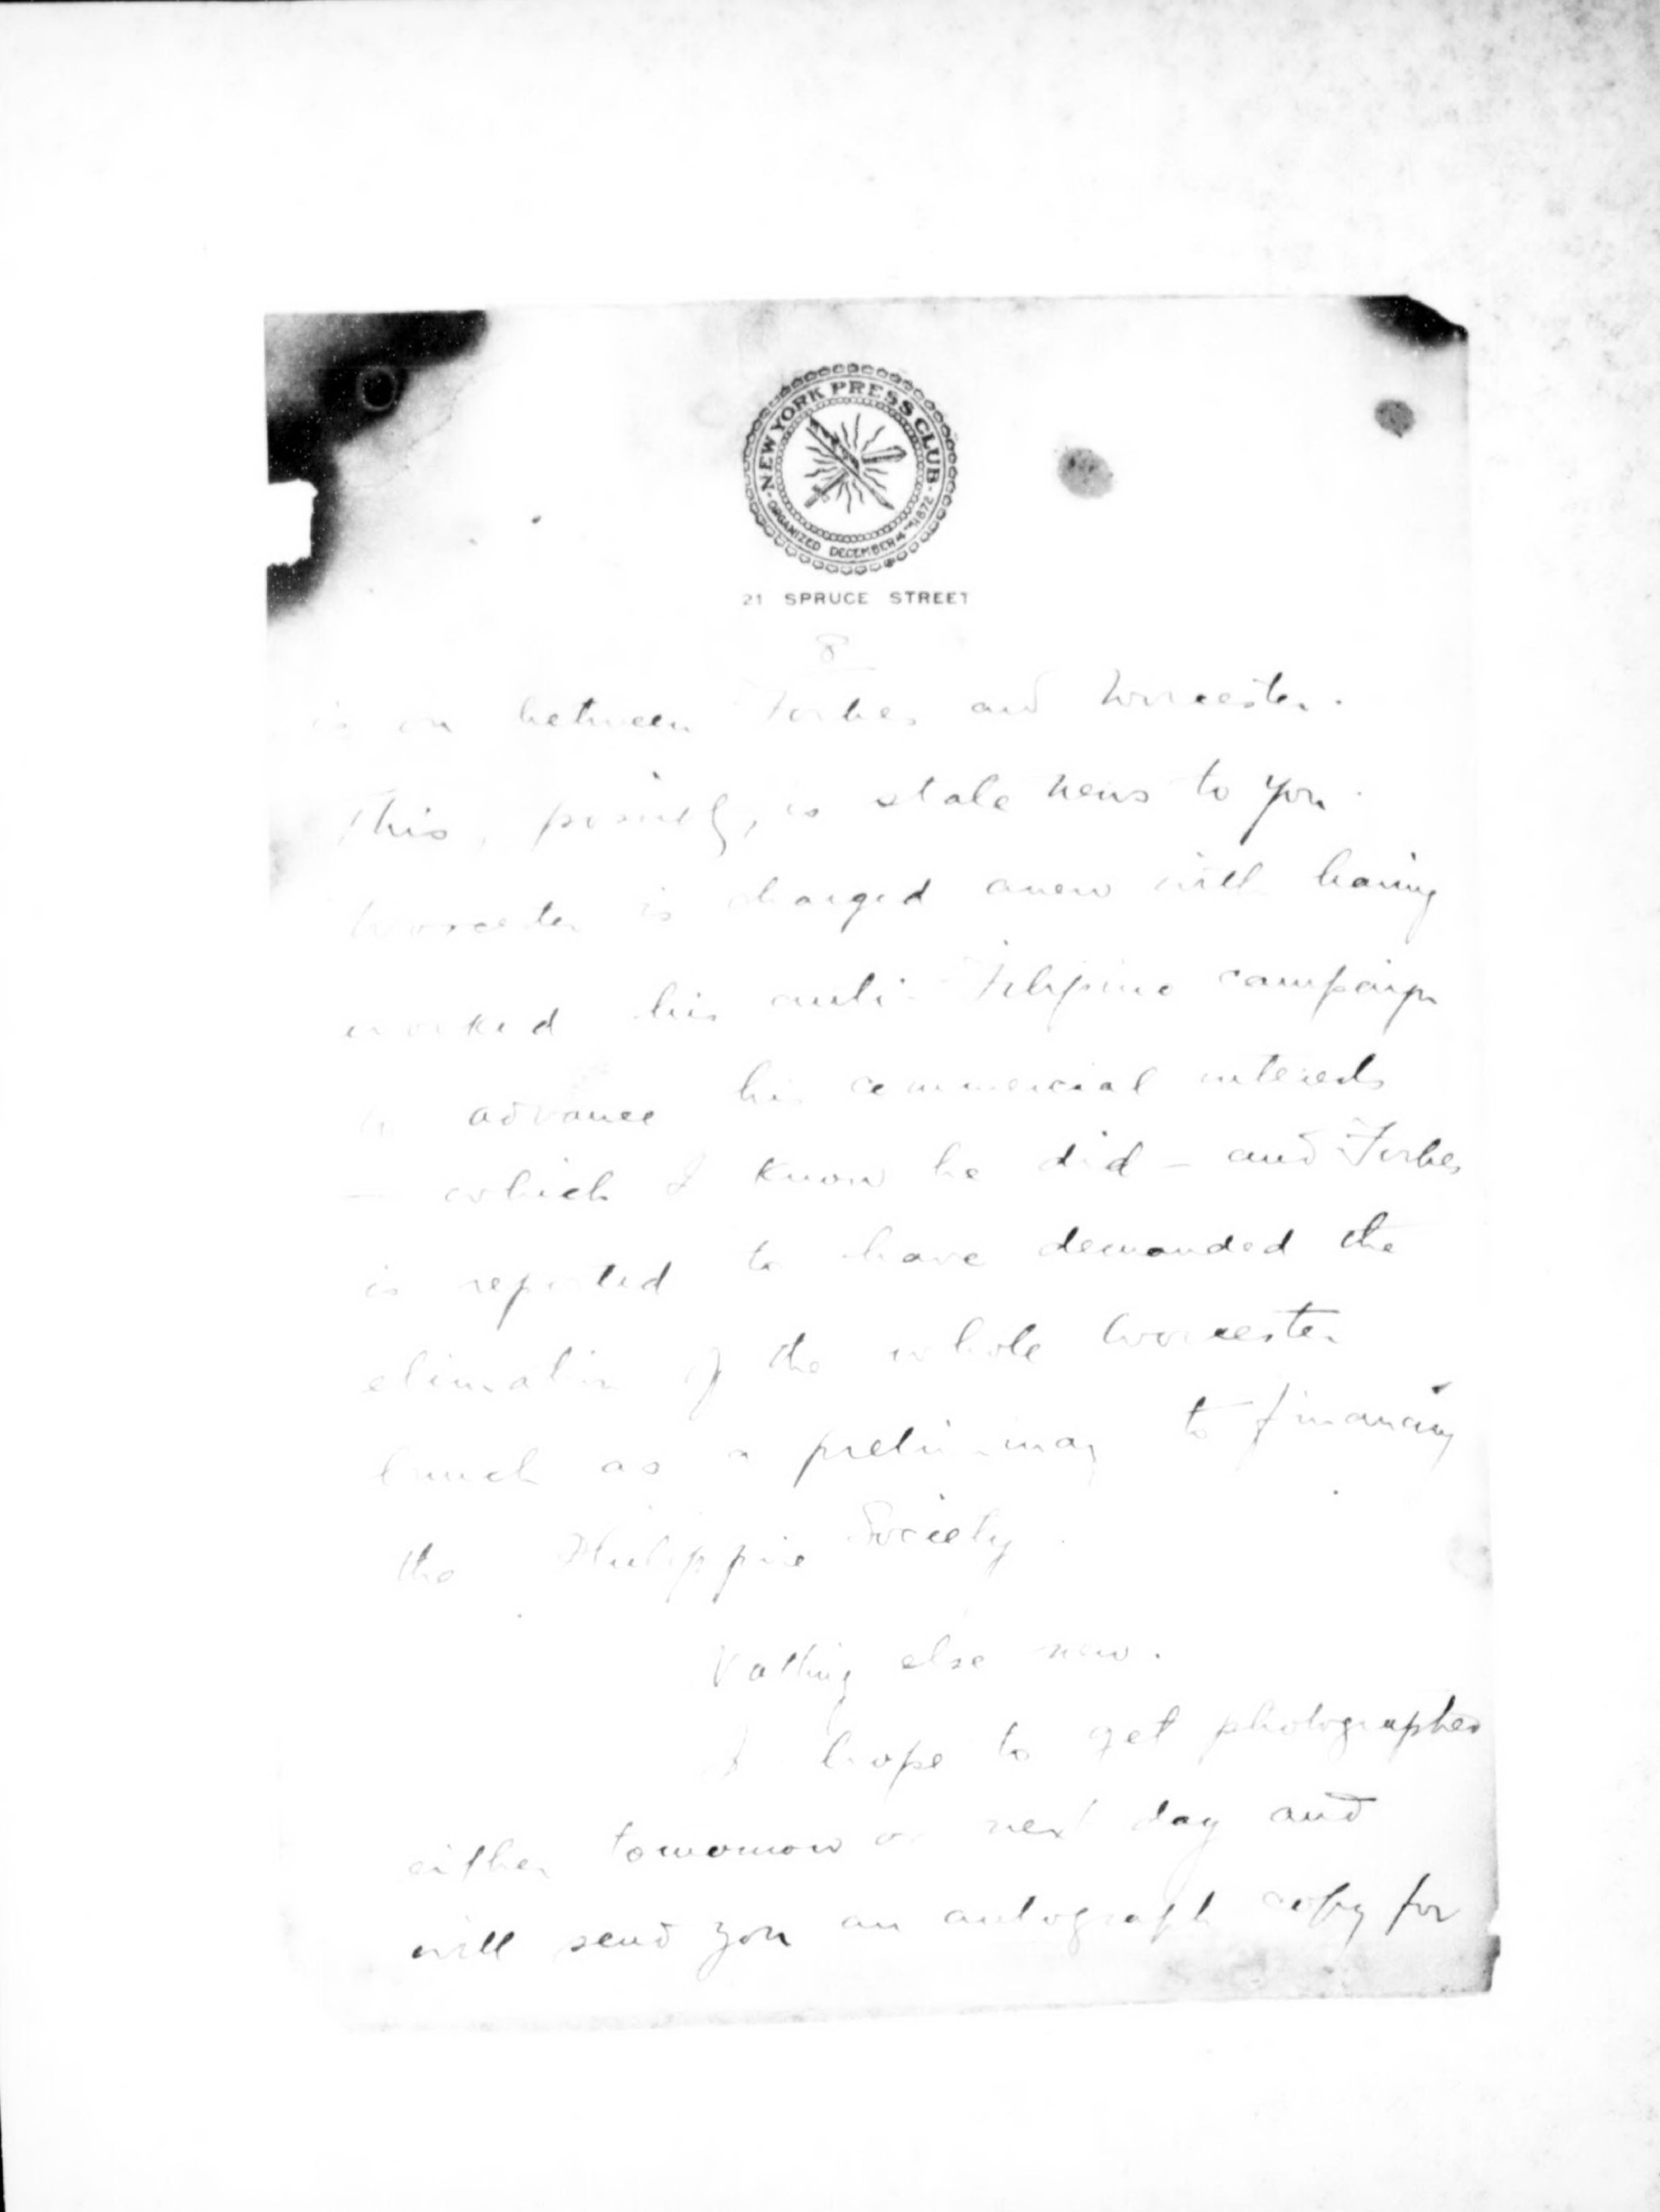 NEW YORK PRESS CLUB
ORGANIZED DECEMBER 4TH 1872
21 SPRUCE STREET
8
is on between Forbes and Worcester.
This, possibly, is stale news to you.
Worcester is charged anew with having
worked his anti-Filipino campaign
to advance his commercial interests
— which I know he did — and Forbes
is reported to have demanded the
elimination of the whole Worcester
bunch as a preliminary to financing
the Philippine Society.
Nothing else new.
I hope to get photographed
either tomorrow or next day and
will send you an autograph copy for